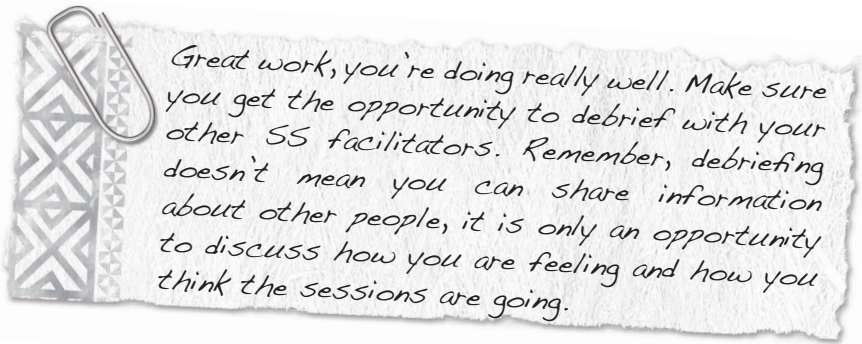 Great work, you're doing really well. Make sure
you get the opportunity to debrief with your
other SS facilitators. Remember, debriefing
doesn't mean you can share information
about other people, it is only an opportunity
to discuss how you are feeling and how you
think the sessions are going.